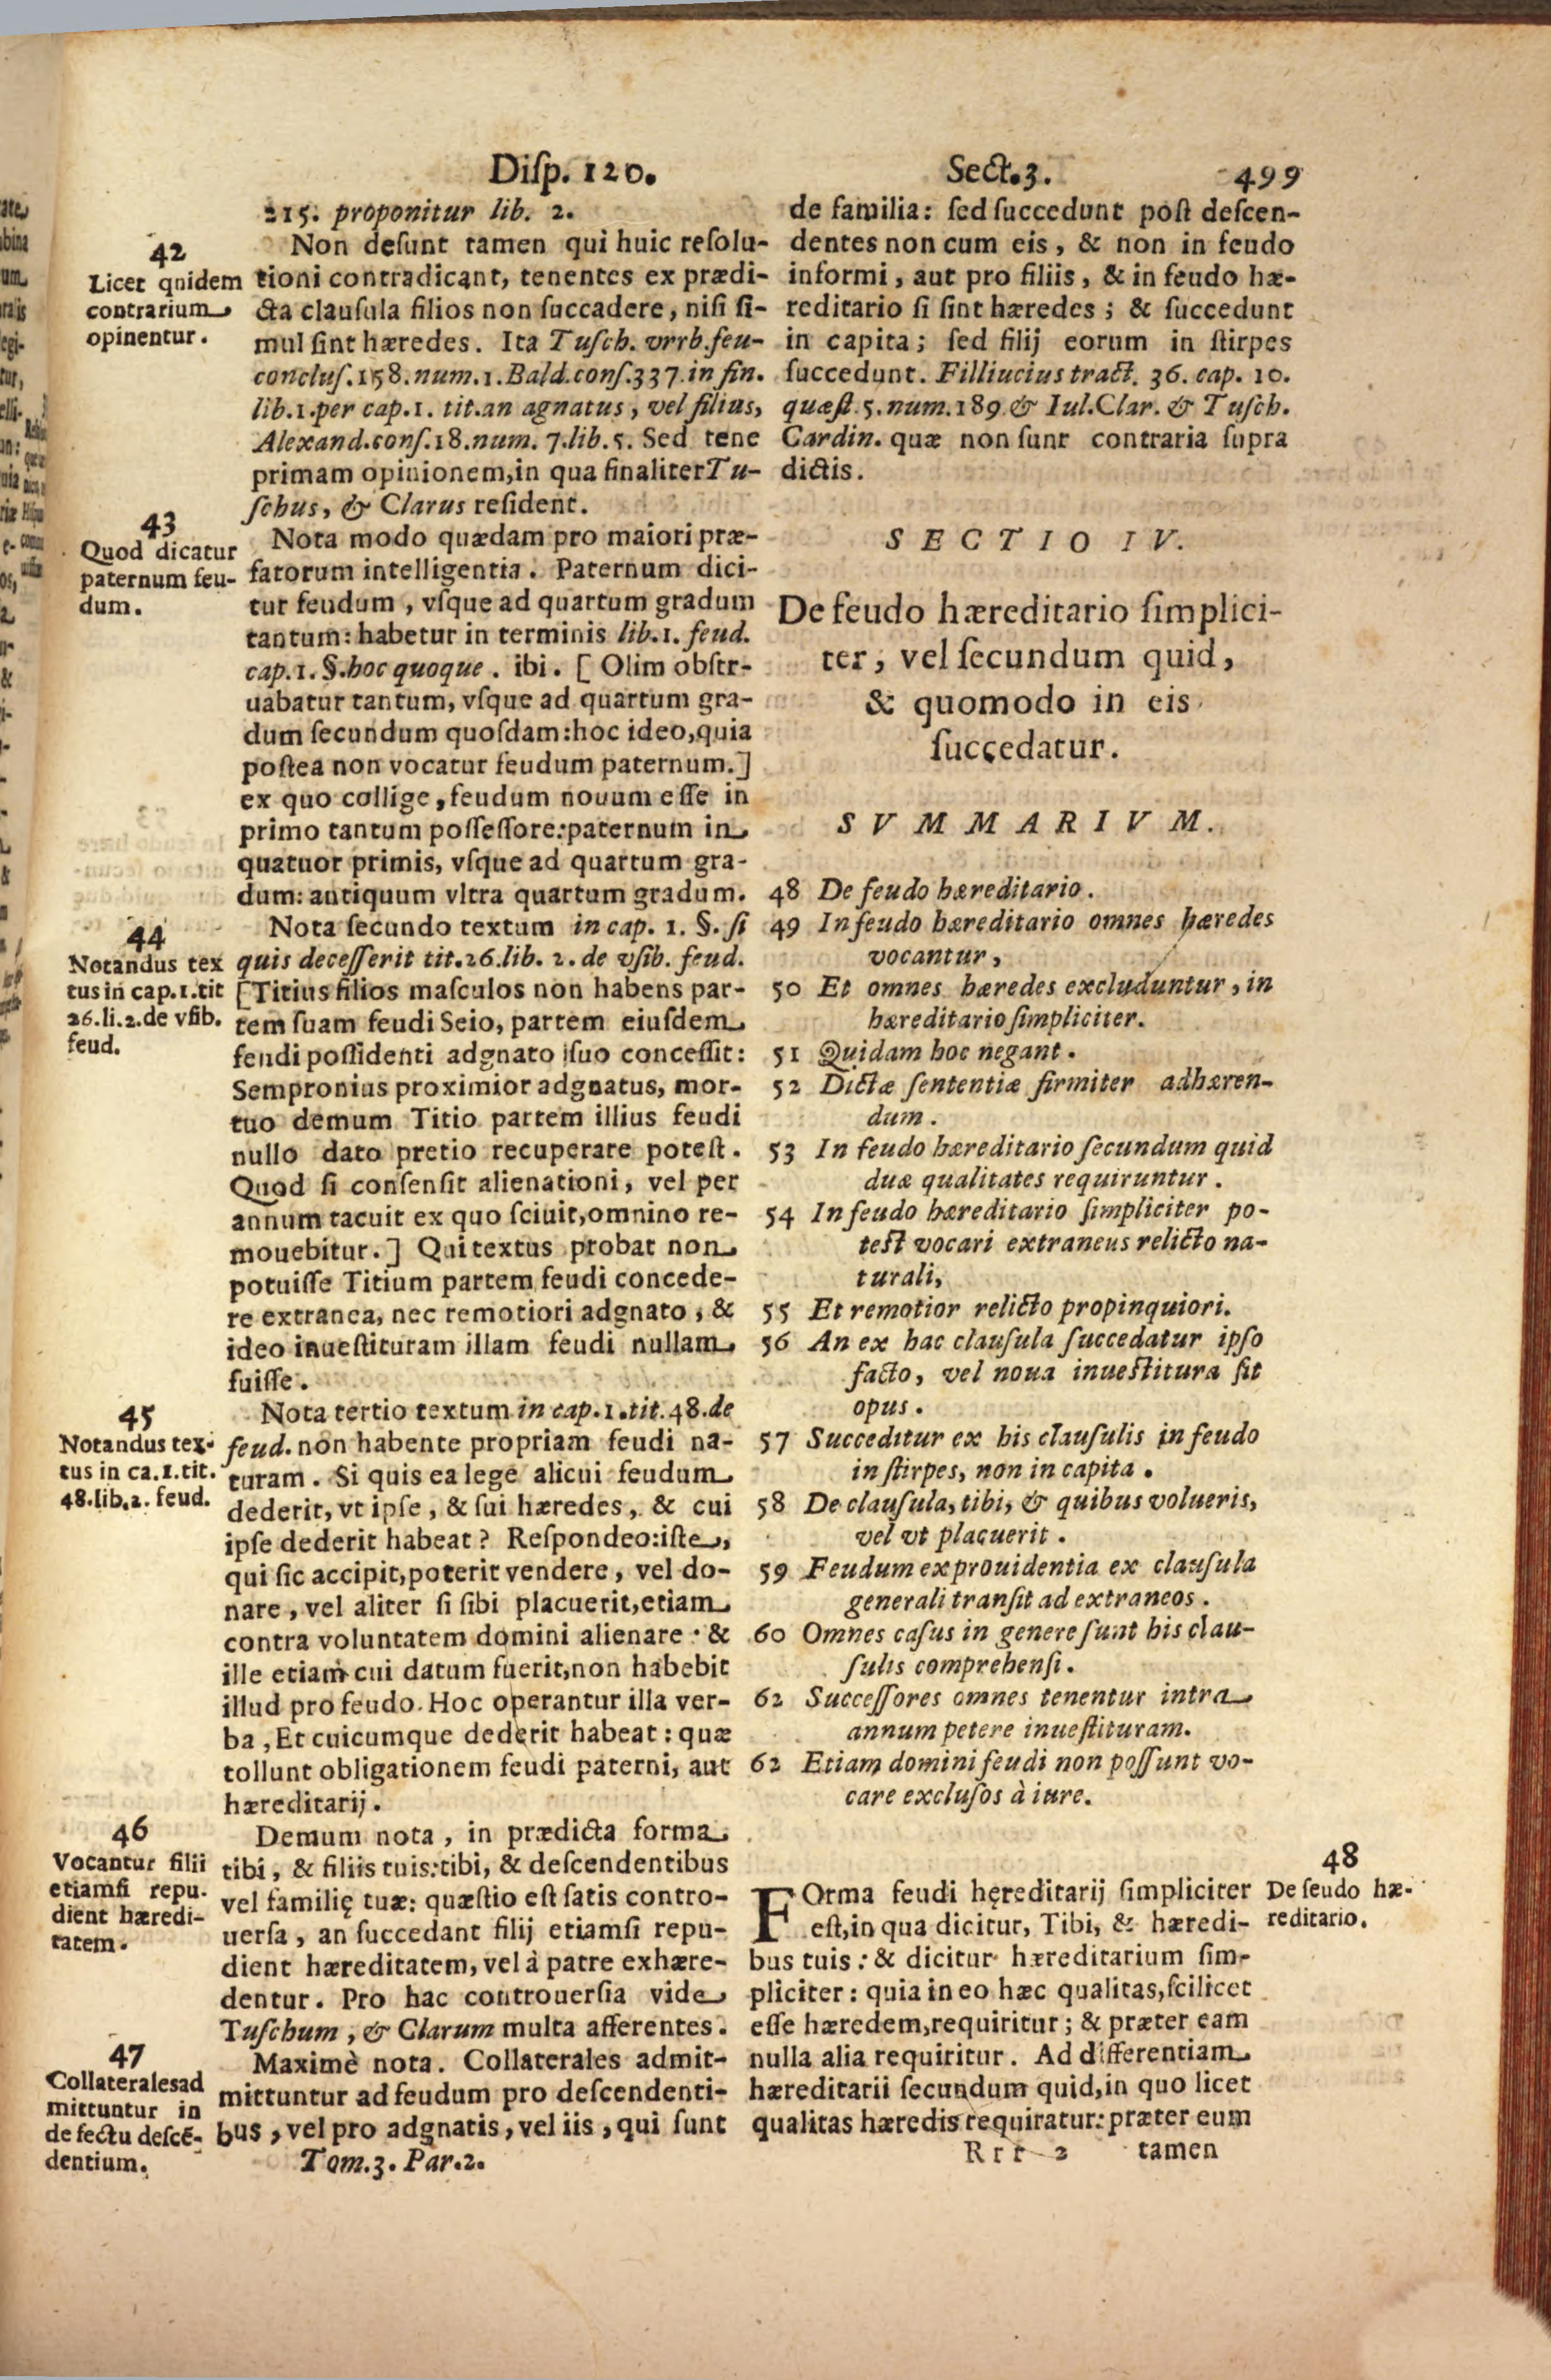 Disp. 120.
Sect.3.
499
215. proponitur lib. 2.
42
Licet quidem
contrarium
opinentur.
Non desunt tamen qui huic resolu-
tioni contradicant, tenentes ex prædi-
cta clausula filios non succadere, nisi si-
mul sint hæredes. Ita Tusch. vrrb.feu-
conclus.158.num.1.Bald.cons.337.in fin.
lib.1.per cap.1. tit.an agnatus, vel filius,
Alexand.cons.18.num. 7.lib.5. Sed tene
primam opinionem,in qua finaliter Tu-
schus, & Clarus resident.
43
Quod dicatur
paternum feu-
dum.
Nota modo quædam pro maiori præ-
fatorum intelligentia. Paternum dici-
tur feudum, vsque ad quartum gradum
tantum: habetur in terminis lib.1. feud.
cap.1. §.hoc quoque. ibi. [ Olim obser-
uabatur tantum, vsque ad quartum gra-
dum secundum quosdam:hoc ideo,quia
postea non vocatur feudum paternum.]
ex quo collige, feudum nouum esse in
primo tantum possessore:paternum in
quatuor primis, vsque ad quartum gra-
dum: antiquum vltra quartum gradum.
44
Notandus tex
tus in cap.1.tit
26.li.2.de vsib.
feud.
Nota secundo textum in cap. 1. §. si
quis decesserit tit.26.lib. 2. de vsib. feud.
[Titius filios masculos non habens par-
tem suam feudi Seio, partem eiusdem
feudi possidenti adgnato suo concessit:
Sempronius proximior adgnatus, mor-
tuo demum Titio partem illius feudi
nullo dato pretio recuperare potest.
Quod si consensit alienationi, vel per
annum tacuit ex quo sciuit,omnino re-
mouebitur.] Qui textus probat non
potuisse Titium partem feudi concede-
re extranea, nec remotiori adgnato, &
ideo inuestituram illam feudi nullam
fuisse.
45
Notandus tex-
tus in ca.1.tit.
48.lib.2. feud.
Nota tertio textum in cap.1.tit.48.de
feud. non habente propriam feudi na-
turam. Si quis ea lege alicui feudum
dederit, vt ipse, & sui hæredes, & cui
ipse dederit habeat? Respondeo:iste,
qui sic accipit,poterit vendere, vel do-
nare, vel aliter si sibi placuerit,etiam
contra voluntatem domini alienare : &
ille etiam cui datum fuerit,non habebit
illud pro feudo. Hoc operantur illa ver-
ba, Et cuicumque dederit habeat: quæ
tollunt obligationem feudi paterni, aut
hæreditarij.
46
Vocantur filii
etiamsi repu-
dient hæredi-
tatem.
Demum nota, in prædicta forma
tibi, & filiis tuis:tibi, & descendentibus
vel familię tuæ: quæstio est satis contro-
uersa, an succedant filij etiamsi repu-
dient hæreditatem, vel à patre exhære-
dentur. Pro hac controuersia vide
Tuschum, & Clarum multa afferentes.
47
Collaterales ad
mittuntur in
defectu descē-
dentium.
Maximè nota. Collaterales admit-
mittuntur ad feudum pro descendenti-
bus, vel pro adgnatis, vel iis, qui sunt
Tom.3. Par.2.
de familia: sed succedunt post descen-
dentes non cum eis, & non in feudo
informi, aut pro filiis, & in feudo hæ-
reditario si sint hæredes; & succedunt
in capita; sed filij eorum in stirpes
succedunt. Filliucius tract. 36. cap. 10.
quæst.5.num.189 & Iul.Clar. & Tusch.
Cardin. quæ non sunt contraria supra
dictis.
SECTIO IV.
De feudo hæreditario simplici-
ter, vel secundum quid,
& quomodo in eis
succedatur.
SVMMARIVM.
48 De feudo hæreditario.
49 In feudo hæreditario omnes hæredes
vocantur,
50 Et omnes hæredes excluduntur, in
hæreditario simpliciter.
51 Quidam hoc negant.
52 Dictæ sententiæ firmiter adhæren-
dum.
53 In feudo hæreditario secundum quid
duæ qualitates requiruntur.
54 In feudo hæreditario simpliciter po-
test vocari extraneus relicto na-
turali,
55 Et remotior relicto propinquiori.
56 An ex hac clausula succedatur ipso
facto, vel noua inuestitura sit
opus.
57 Succeditur ex his clausulis in feudo
in stirpes, non in capita.
58 De clausula, tibi, & quibus volueris,
vel vt placuerit.
59 Feudum ex prouidentia ex clausula
generali transit ad extraneos.
60 Omnes casus in genere sunt his clau-
sulis comprehensi.
62 Successores omnes tenentur intra
annum petere inuestituram.
62 Etiam domini feudi non possunt vo-
care exclusos à iure.
48
De feudo hæ-
reditario.
FOrma feudi hęreditarij simpliciter
est,in qua dicitur, Tibi, & hæredi-
bus tuis: & dicitur hæreditarium sim-
pliciter: quia in eo hæc qualitas,scilicet
esse hæredem,requiritur; & præter eam
nulla alia requiritur. Ad differentiam
hæreditarii secundum quid,in quo licet
qualitas hæredis requiratur:præter eum
Rrr 2
tamen